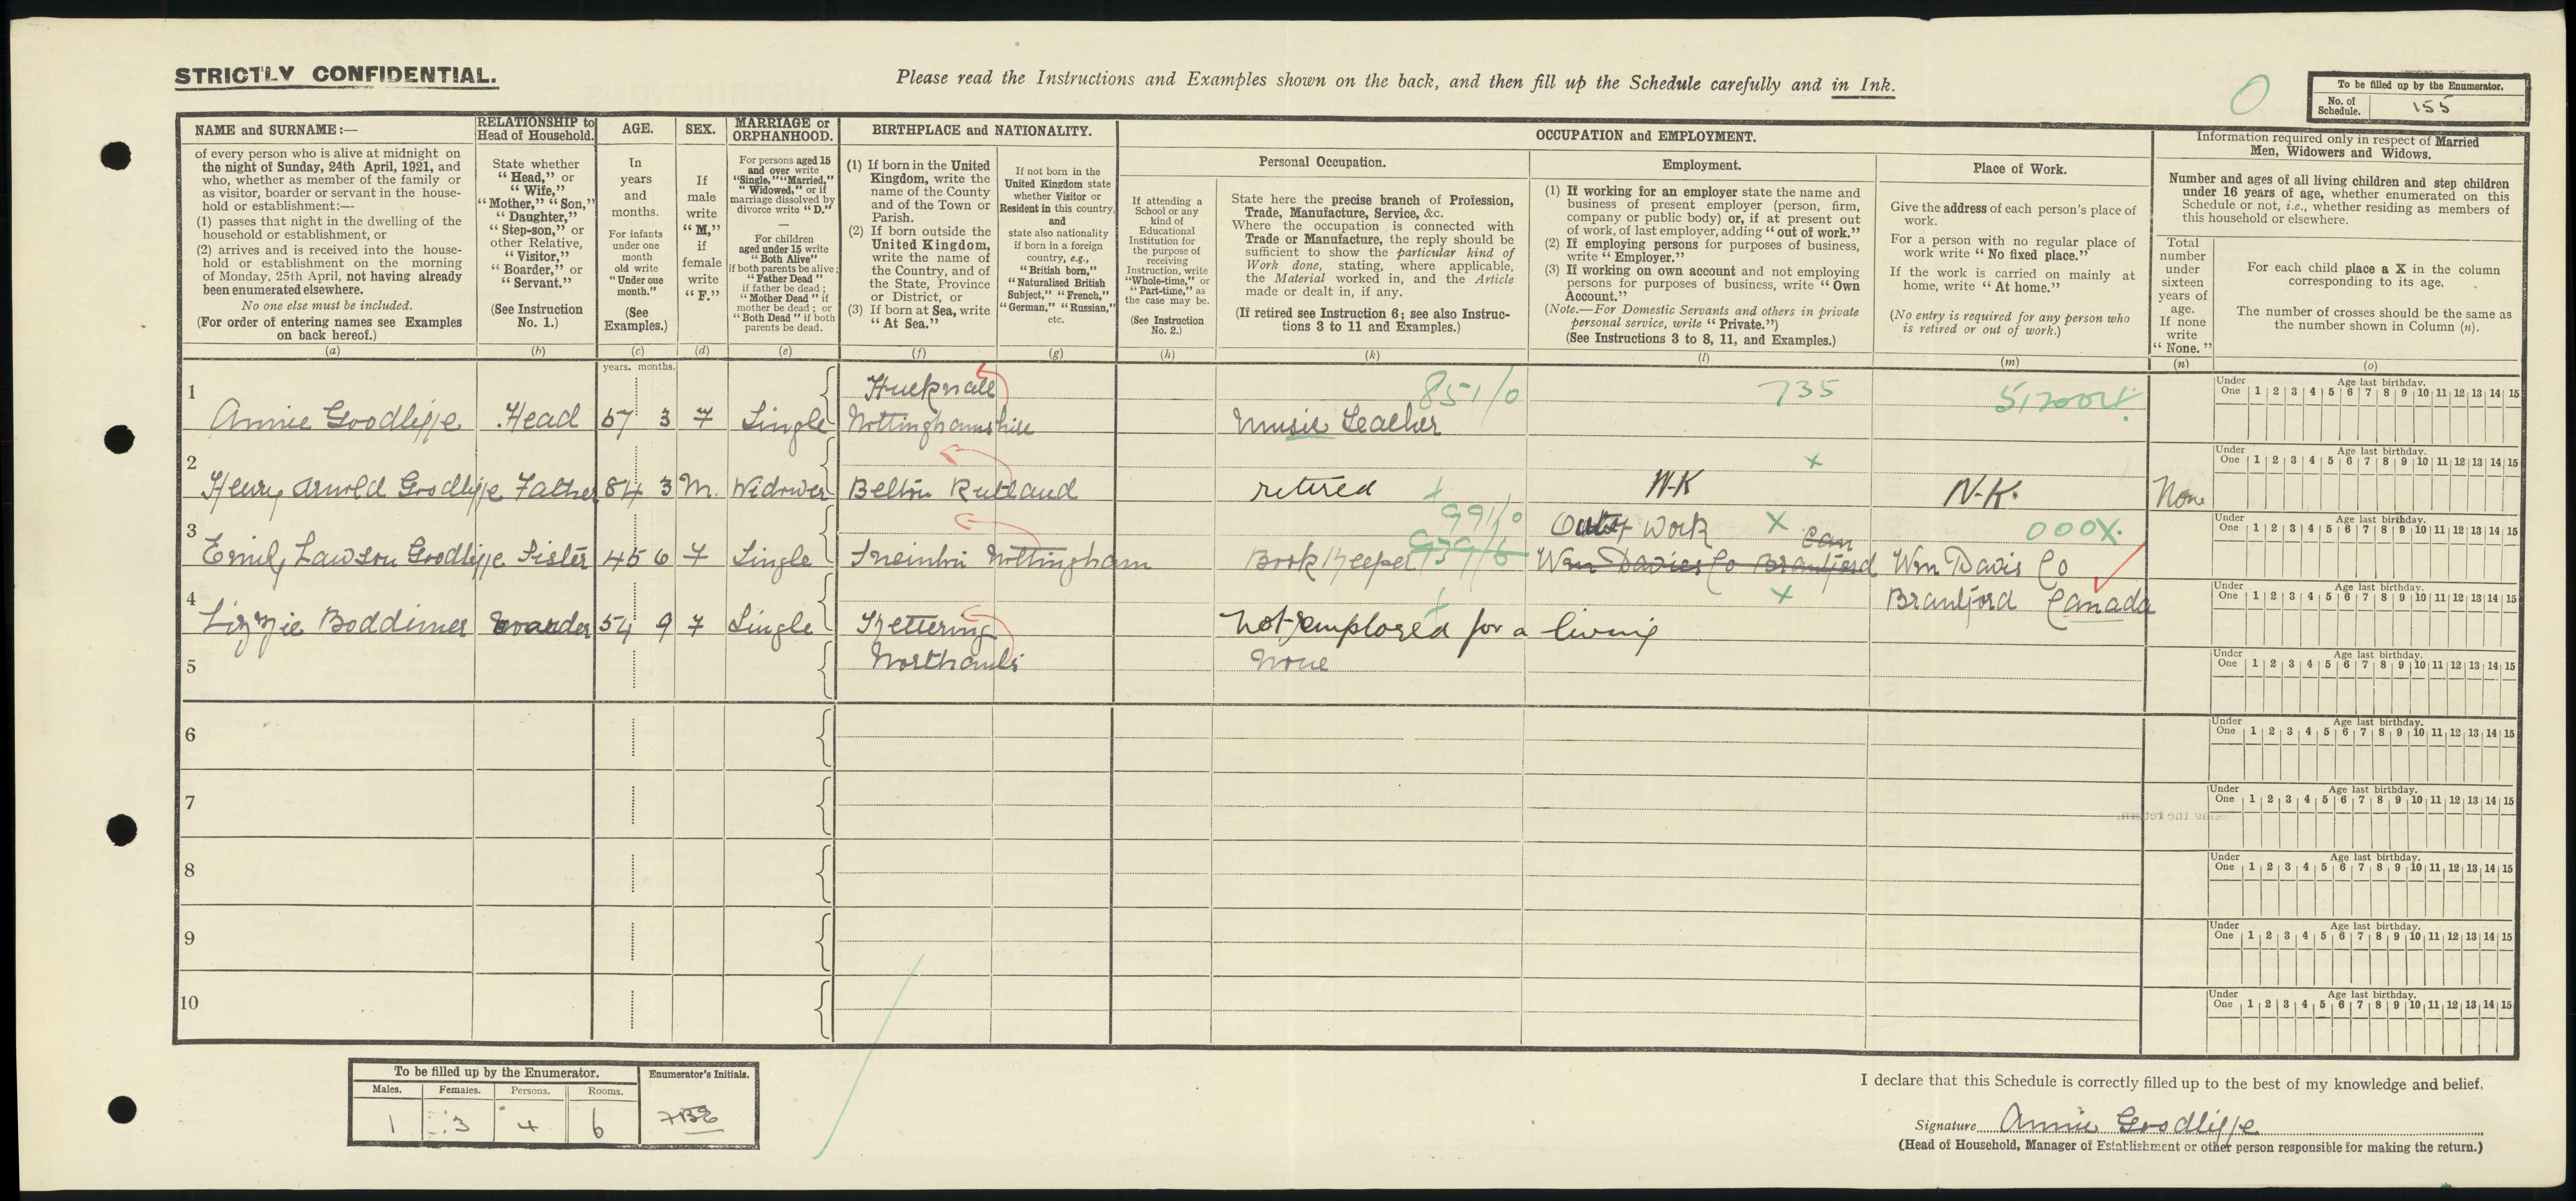 STRICTLY CONFIDENTIAL.
Please read the Instructions and Examples shown on the back, and then fill up the Schedule carefully and in Ink.
To be filled up by the Enumerator.
No. of Schedule. 155
NAME and SURNAME:—
of every person who is alive at midnight on
the night of Sunday, 24th April, 1921, and
who, whether as member of the family or
as visitor, boarder or servant in the house-
hold or establishment:—
(1) passes that night in the dwelling of the
household or establishment, or
(2) arrives and is received into the house-
hold or establishment on the morning
of Monday, 25th April, not having already
been enumerated elsewhere.
No one else must be included.
(For order of entering names see Examples
on back hereof.)
(a)
RELATIONSHIP to
Head of Household.
State whether
"Head," or
"Wife,"
"Mother," "Son,"
"Daughter,"
"Step-son," or
other Relative,
"Visitor,"
"Boarder," or
"Servant."
(See Instruction
No. 1.)
(b)
AGE.
In
years
and
months.
For infants
under one
month
old write
"Under one
month."
(See
Examples.)
(c)
SEX.
If
male
write
"M,"
if
female
write
"F."
(d)
MARRIAGE or
ORPHANHOOD.
For persons aged 15
and over write
"Single," "Married,"
"Widowed," or if
marriage dissolved by
divorce write "D."
—
For children
aged under 15 write
"Both Alive"
if both parents be alive;
"Father Dead"
if father be dead;
"Mother Dead" if
mother be dead; or
"Both Dead" if both
parents be dead.
(e)
BIRTHPLACE and NATIONALITY.
(1) If born in the United
Kingdom, write the
name of the County
and of the Town or
Parish.
(2) If born outside the
United Kingdom,
write the name of
the Country, and of
the State, Province
or District, or
(3) If born at Sea, write
"At Sea."
(f)
If not born in the
United Kingdom state
whether Visitor or
Resident in this country,
and
state also nationality
if born in a foreign
country, e.g.,
"British born,"
"Naturalised British
Subject," "French,"
"German," "Russian,"
etc.
(g)
OCCUPATION and EMPLOYMENT.
If attending a
School or any
kind of
Educational
Institution for
the purpose of
receiving
Instruction, write
"Whole-time," or
"Part-time," as
the case may be.
(See Instruction
No. 2.)
(h)
Personal Occupation.
State here the precise branch of Profession,
Trade, Manufacture, Service, &c.
Where the occupation is connected with
Trade or Manufacture, the reply should be
sufficient to show the particular kind of
Work done, stating, where applicable,
the Material worked in, and the Article
made or dealt in, if any.
(If retired see Instruction 6; see also Instruc-
tions 3 to 11 and Examples.)
(k)
Employment.
(1) If working for an employer state the name and
business of present employer (person, firm,
company or public body) or, if at present out
of work, of last employer, adding "out of work."
(2) If employing persons for purposes of business,
write "Employer."
(3) If working on own account and not employing
persons for purposes of business, write "Own
Account."
(Note.—For Domestic Servants and others in private
personal service, write "Private.")
(See Instructions 3 to 8, 11, and Examples.)
(l)
Place of Work.
Give the address of each person's place of
work.
For a person with no regular place of
work write "No fixed place."
If the work is carried on mainly at
home, write "At home."
(No entry is required for any person who
is retired or out of work.)
(m)
Information required only in respect of Married
Men, Widowers and Widows.
Number and ages of all living children and step children
under 16 years of age, whether enumerated on this
Schedule or not, i.e., whether residing as members of
this household or elsewhere.
Total
number
under
sixteen
years of
age.
If none
write
"None."
(n)
For each child place a X in the column
corresponding to its age.
The number of crosses should be the same as
the number shown in Column (n).
(o)
years. months.
1 Hucknall 851/0 735
Annie Goodliffe Head 57 3 F Single Nottinghamshire Music Teacher
2 Henry Arnold Goodliffe Father 84 3 M. Widower Belton Rutland retired N-K N-K. None
3 991/0 Out of Work 000X.
Emily Lawson Goodliffe Sister 45 6 F Single Sneinton Nottingham Book Keeper 939/6 Wm Davies Co Brantford Can Wm Davis Co
Brantford Canada
4 Lizzie Boddimer Boarder 54 9 F Single Kettering Not employed for a living
Northants None
5
6
7
8
9
10
Under One Age last birthday. 1 2 3 4 5 6 7 8 9 10 11 12 13 14 15
Under One Age last birthday. 1 2 3 4 5 6 7 8 9 10 11 12 13 14 15
Under One Age last birthday. 1 2 3 4 5 6 7 8 9 10 11 12 13 14 15
Under One Age last birthday. 1 2 3 4 5 6 7 8 9 10 11 12 13 14 15
Under One Age last birthday. 1 2 3 4 5 6 7 8 9 10 11 12 13 14 15
Under One Age last birthday. 1 2 3 4 5 6 7 8 9 10 11 12 13 14 15
Under One Age last birthday. 1 2 3 4 5 6 7 8 9 10 11 12 13 14 15
Under One Age last birthday. 1 2 3 4 5 6 7 8 9 10 11 12 13 14 15
Under One Age last birthday. 1 2 3 4 5 6 7 8 9 10 11 12 13 14 15
Under One Age last birthday. 1 2 3 4 5 6 7 8 9 10 11 12 13 14 15
To be filled up by the Enumerator. Enumerator's Initials.
Males. Females. Persons. Rooms.
1 3 4 6
I declare that this Schedule is correctly filled up to the best of my knowledge and belief.
Signature Annie Goodliffe
(Head of Household, Manager of Establishment or other person responsible for making the return.)